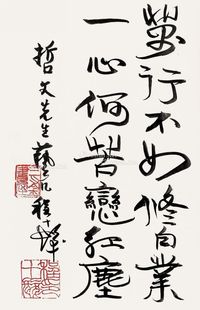 萬行不如修白業
一心何苦戀紅塵
哲文先生藝几程十髮